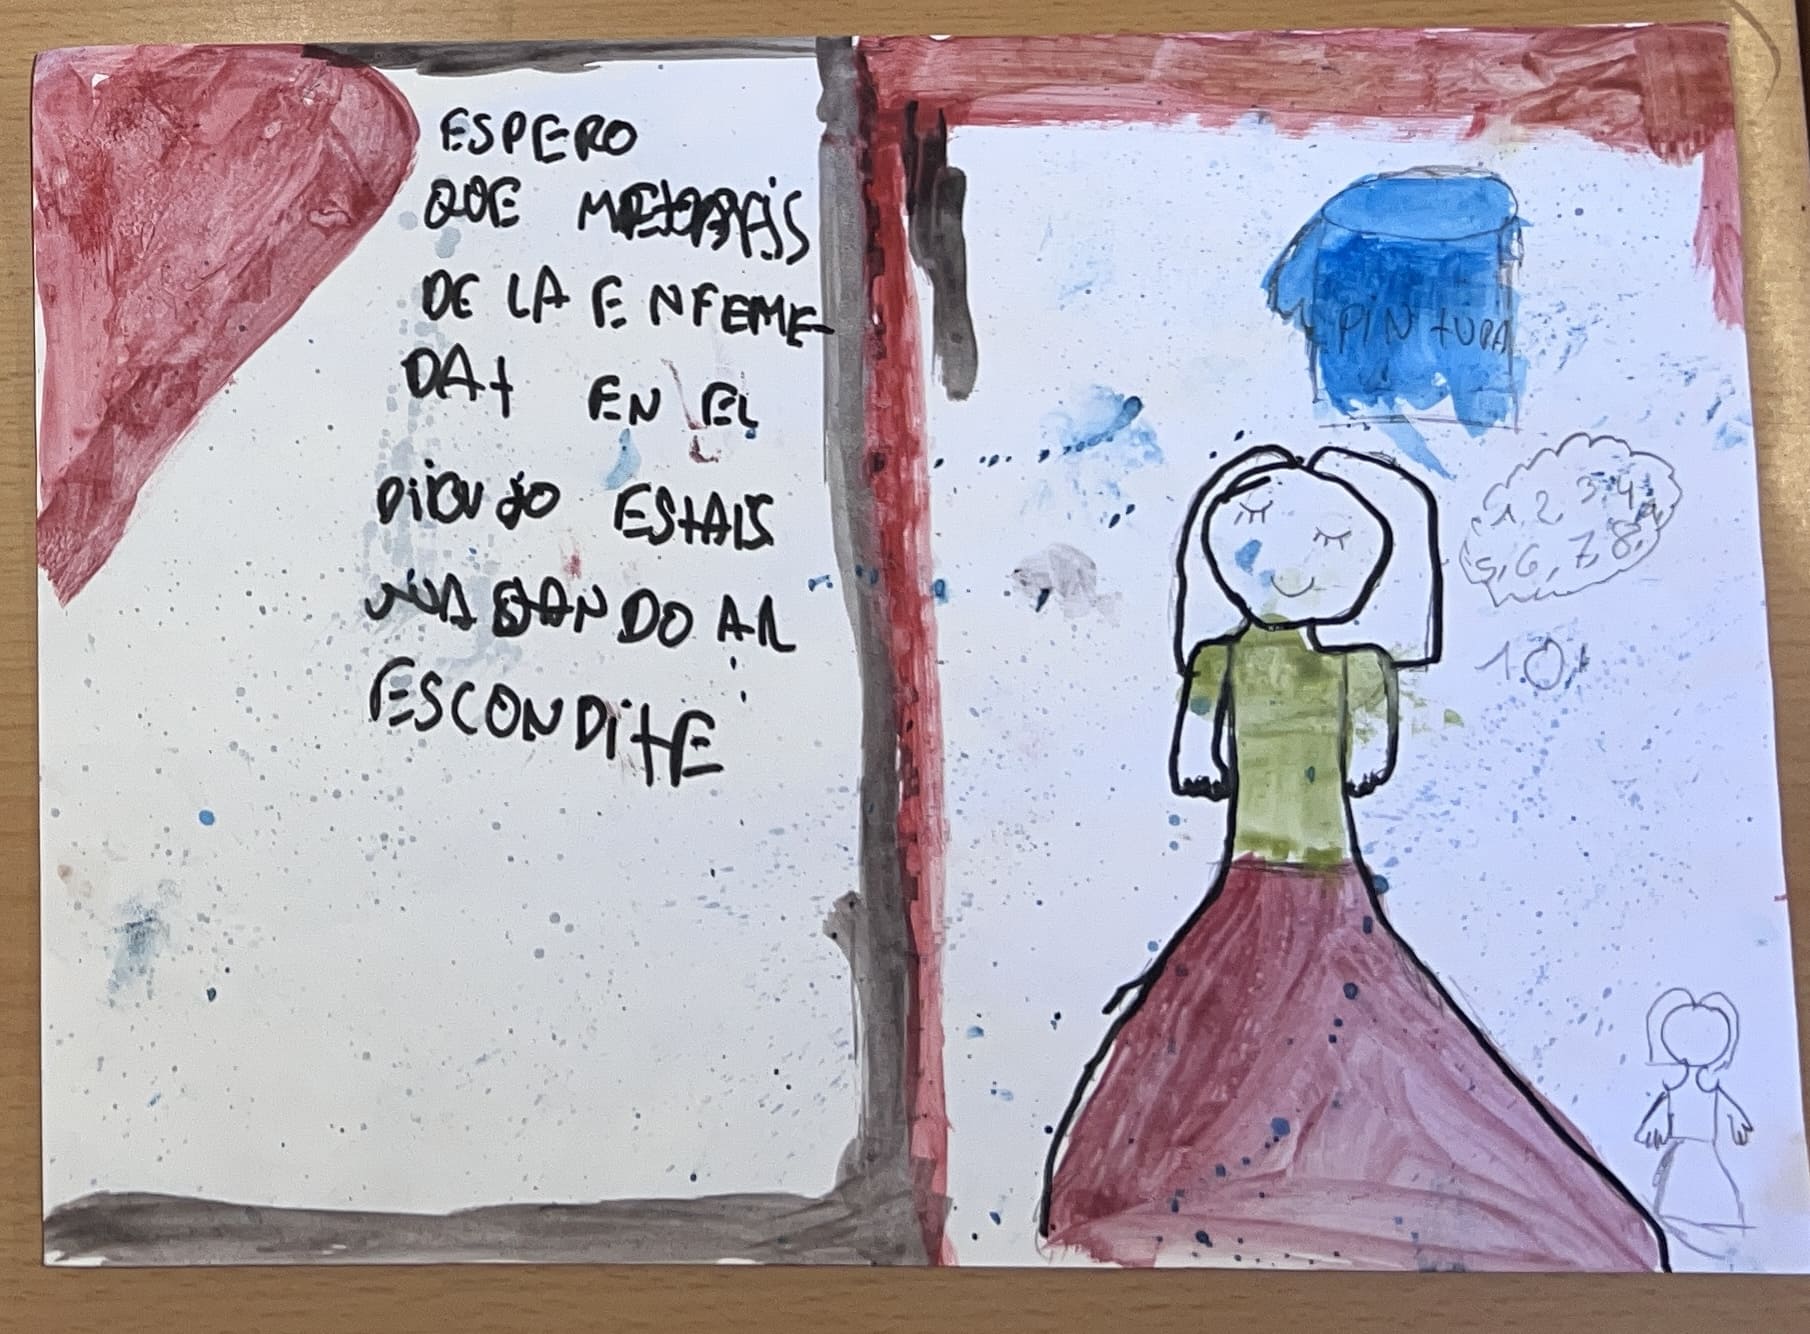 ESPERO
QUE MEJORÁIS
DE LA ENFEME-
DAT EN EL
DIBUJO ESTAIS
JUGANDO AL
ESCONDITE
PINTURA
1, 2 3, 4,
5, 6, 7 8, 9
10